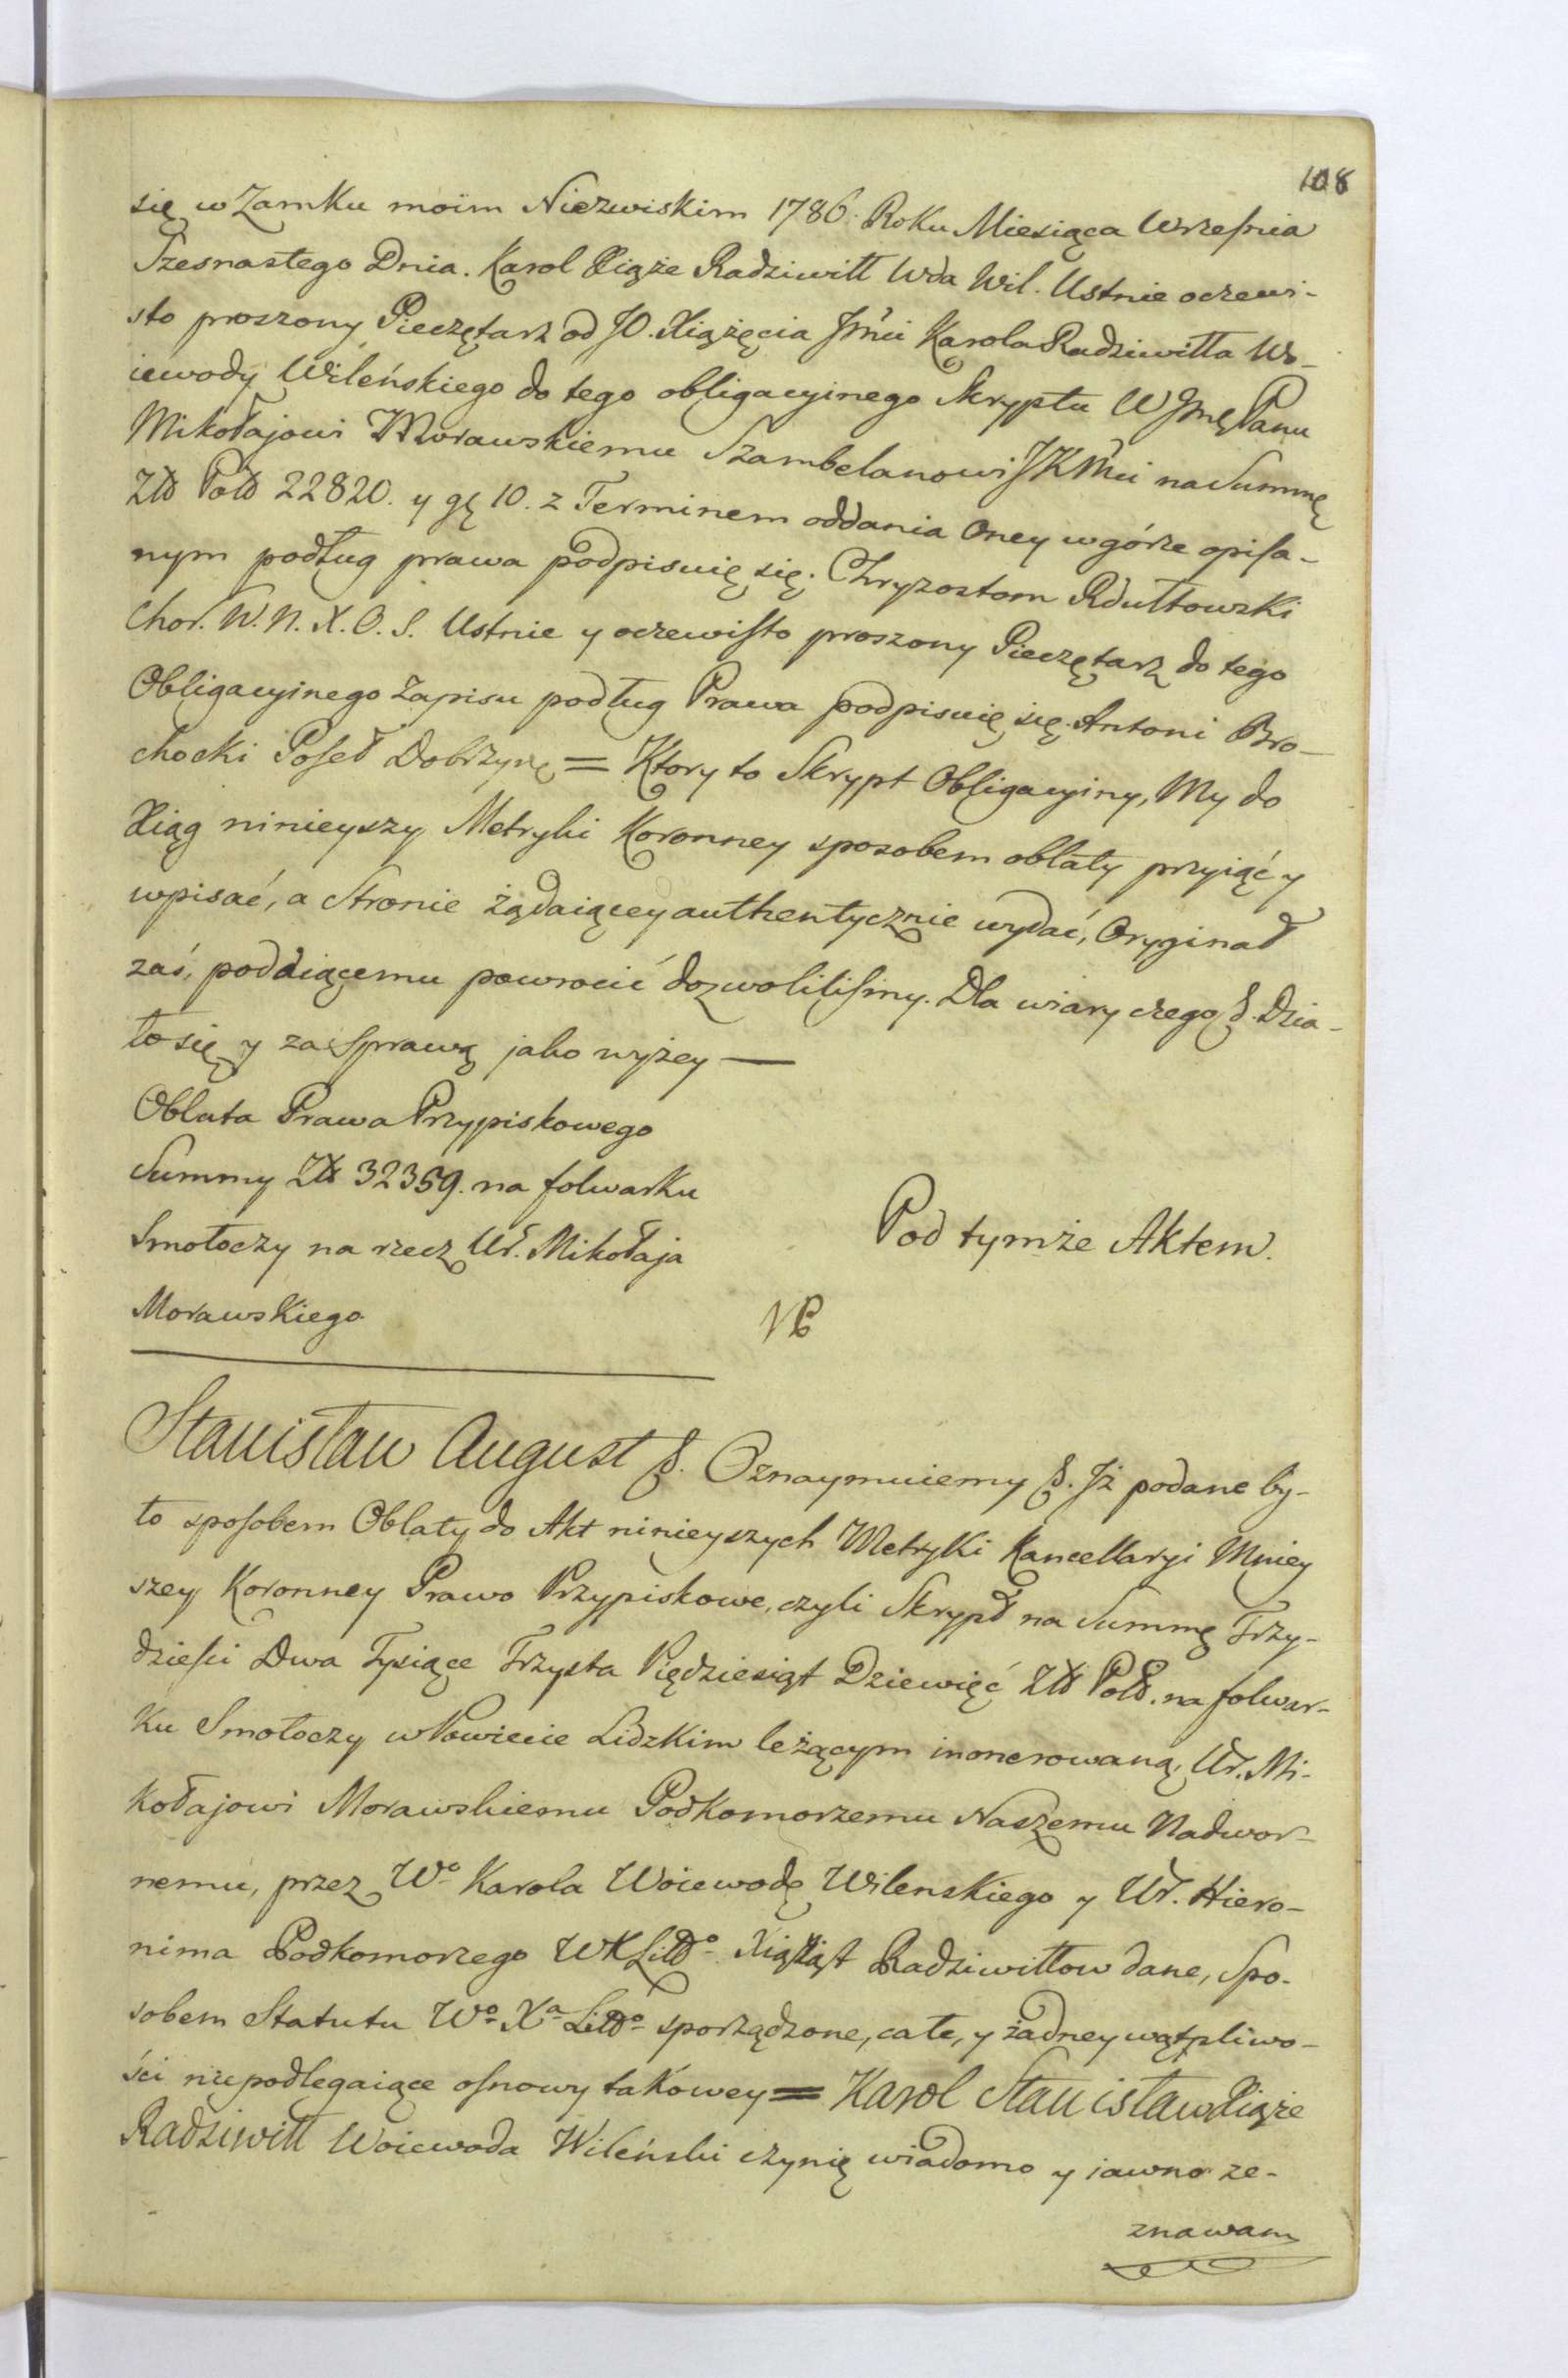 108
się w Zamku moim Nieswiskim 1786. Roku Miesiąca Września
Szesnastego Dnia. Karol Xiąże Radziwiłł Wda Wil. Ustnie oczewi-
sto proszony Pieczętarz od JO. Xiążęcia Jmći Karola Radziwiłła Wo-
iewody Wileńskiego do tego obligacyinego Skryptu W Jmę Panu
Mikołajowi Morawskiemu Szambelanowi JKMći na Summę
Złł Poll 22820. y gę 10. z Terminem oddania Oney w górze opisa-
nym podług prawa podpisuię się. Chryzostom Rdułtowski
Chor. W. N. X. O. S. Ustnie y oczewisto proszony Pieczętarz do tego
Obligacyinego Zapisu podług Prawa podpisuię się. Antoni Bro-
chocki Poseł Dobrzyńs = Ktory to Skrypt Obligacyiny, My do
Xiąg ninieyszy Metryki Koronney sposobem oblaty przyiąć y
wpisać, a Stronie żądaiącey authentycznie wydać, Oryginał
zaś, poddaiącemu powrocić dozwolilismy. Dla wiary czego &. Dzia-
ło się y za Sprawą jako wyżey —
Oblata Prawa Przypiskowego
Summy Złł 32359. na folwarku
Smołoczy na rzecz Ur. Mikołaja
Morawskiego
Pod tymże Aktem.
NB
Stanisław August &. Oznaymuiemy &. Iż podane by-
ło sposobem Oblaty do Akt ninieyszych Metryki Kancellaryi Mniey
szey Koronney Prawo Przypiskowe, czyli Skrypt na Summę Trzy-
dzieści Dwa Tysiące Trzysta Piędziesiąt Dziewięć Złł Poll. na folwar-
ku Smołoczy w Powiecie Lidzkim leżącym inonerowaną, Ur. Mi-
kołajowi Morawskiemu Podkomorzemu Naszemu Nadwor-
nemu, przez Wo Karola Woiewodę Wilenskiego y Ur. Hiero-
nima Podkomorzego WXLitto Xiążąt Radziwiłłow dane, Spo-
sobem Statutu Wo Xa Litto sporządzone, całe, y żadney wątpliwo-
ści niepodlegaiące osnowy takowey = Karol Stanisław Xiąże
Radziwiłł Woiewoda Wileński czynię wiadomo y iawno ze-
znawam